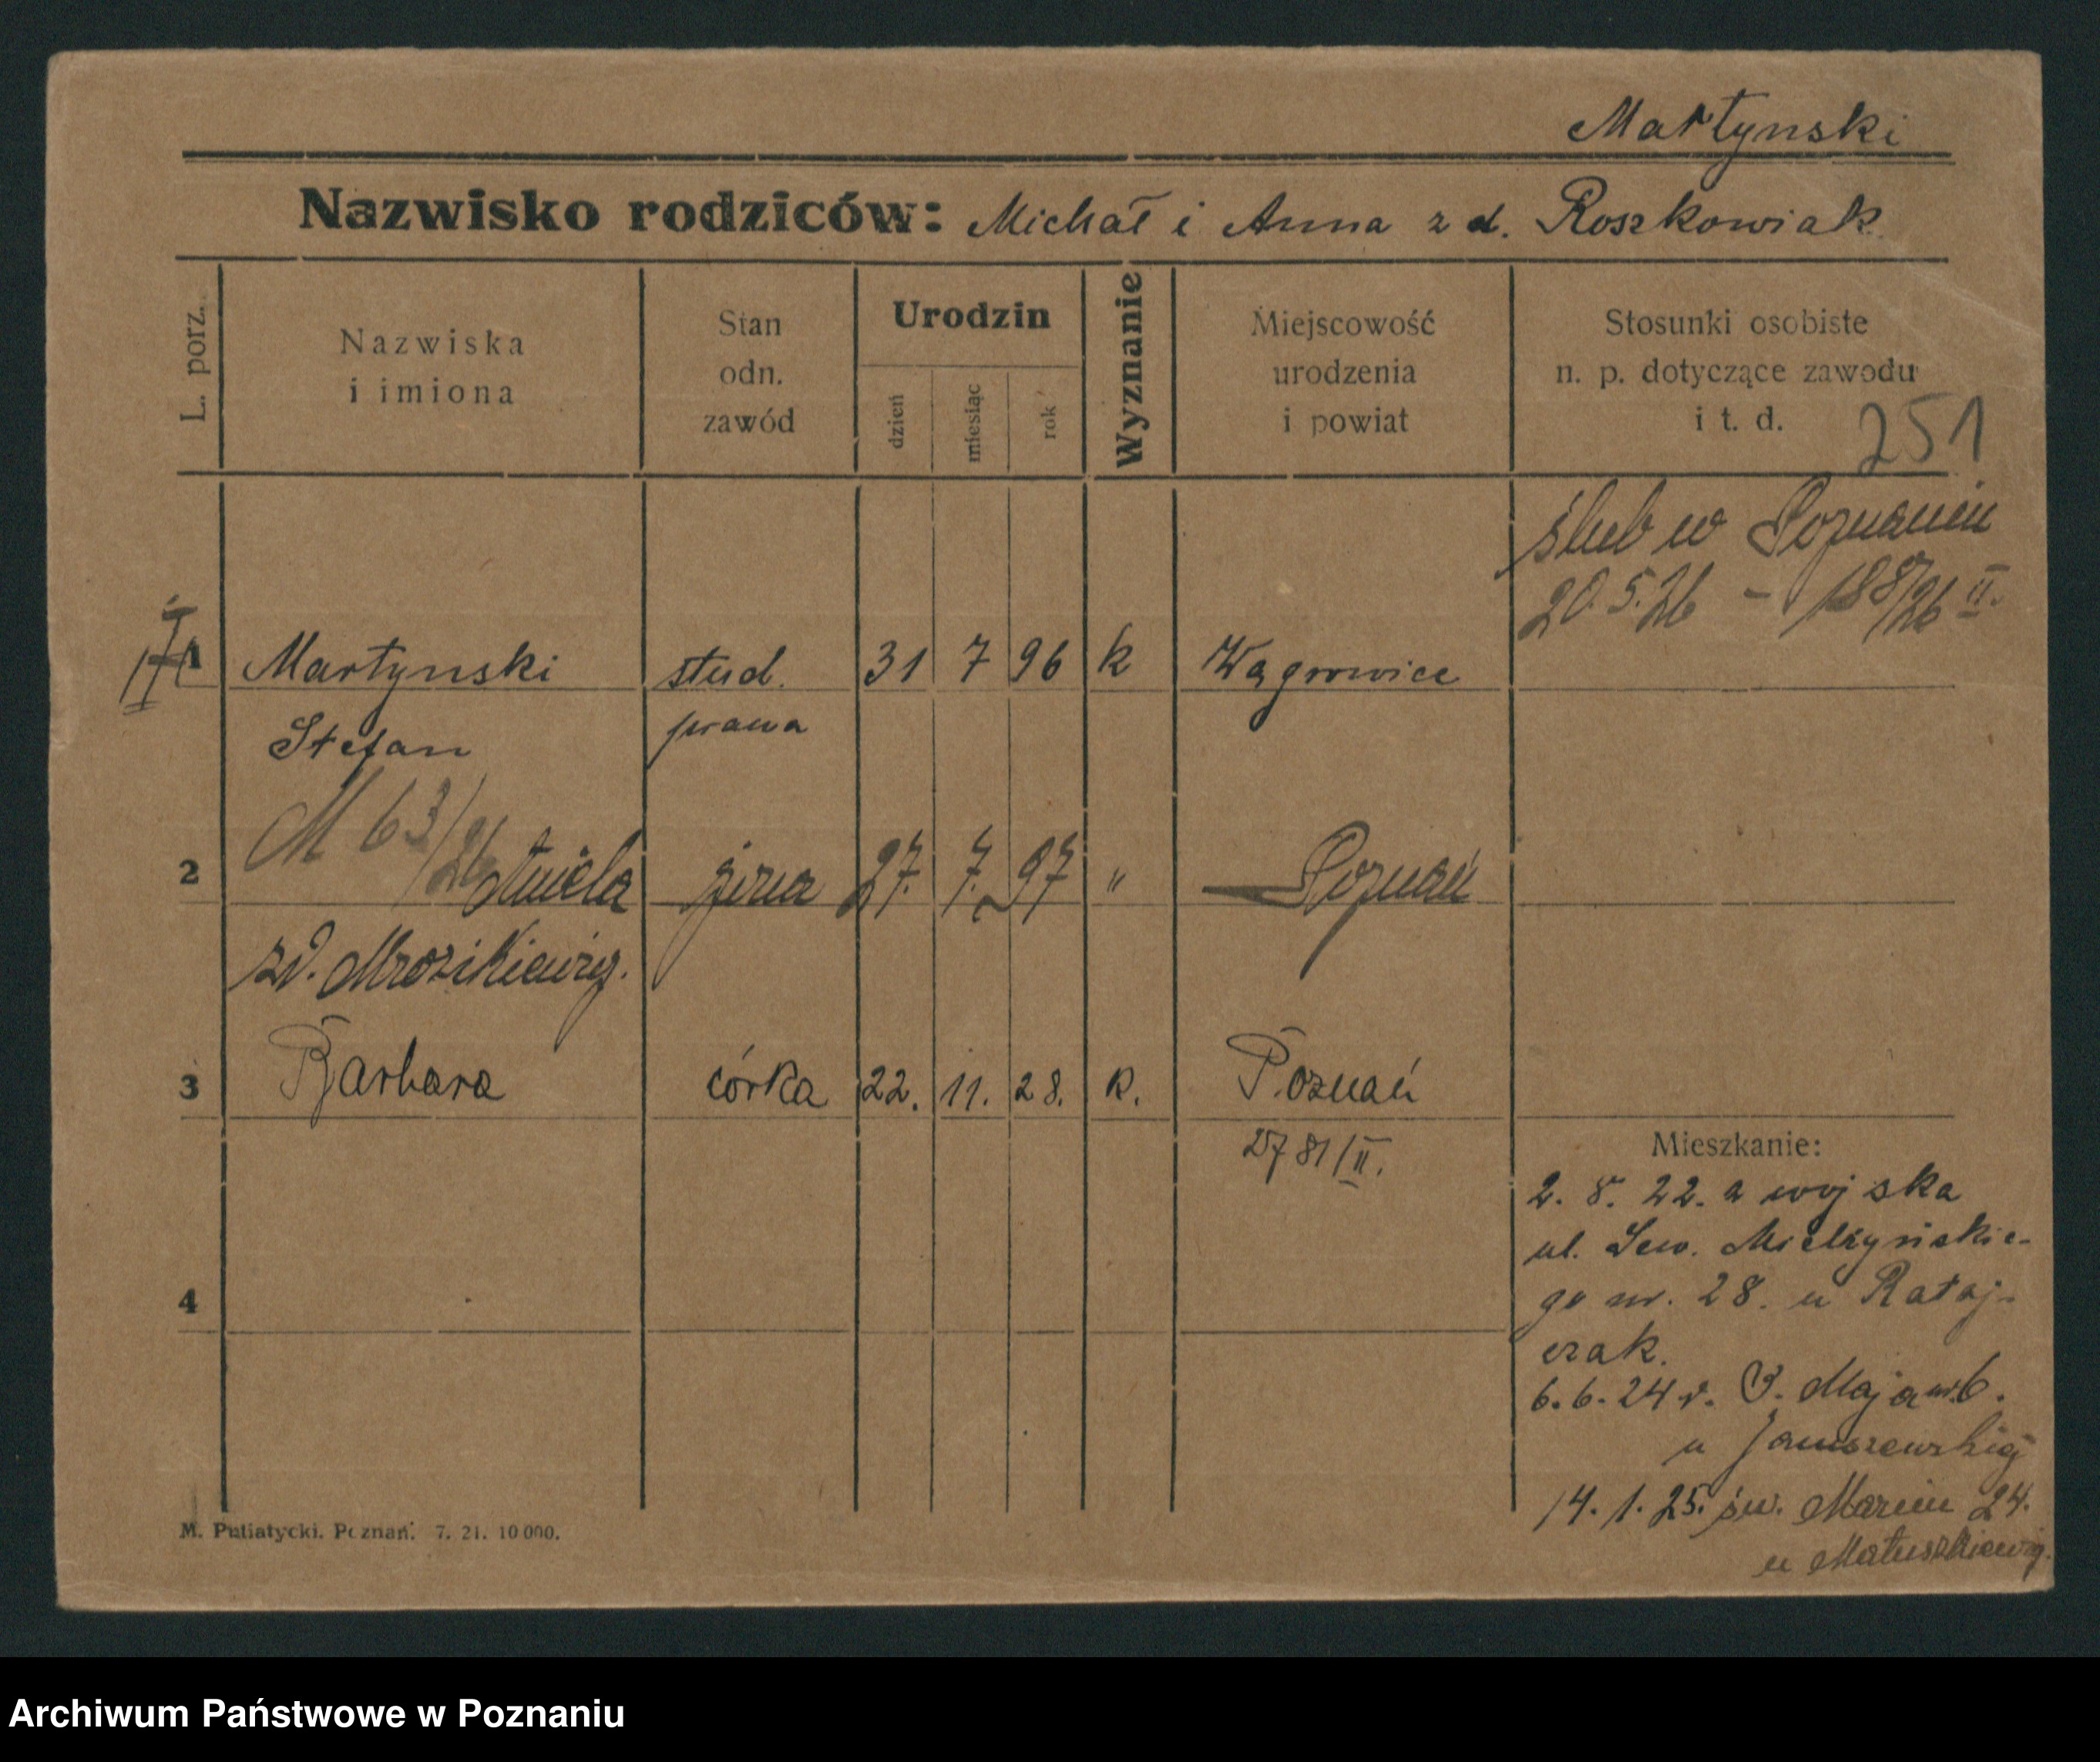 Martynski
Nazwisko rodziców: Michał i Anna z d. Roszkowiak
L. porz.
Nazwiska
i imiona
Stan
odn.
zawód
Urodzin
dzień
miesiąc
rok
Wyznanie
Miejscowość
urodzenia
i powiat
Stosunki osobiste
n. p. dotyczące zawodu
i t. d.
251
ślub w Poznaniu
20.5.26 – 188/26 II.
1 Martynski stud. 31 7 96 k Wągrowiec
Stefan prawa
M 63/26
2 Aniela żona 27. 7. 97 " Poznań
zd. Mrozikiewicz.
3 Barbara córka 22. 11. 28. k. Poznań
2781/II.
Mieszkanie:
2. 8. 22. z wojska
ul. Sew. Mielżyńskie-
go nr. 28. u Rataj-
czak.
6.6.24 r. 3. Maja nr. 6.
u Januszewskiej
14. 1. 25. św. Marcin 24.
u Matuszkiewicz.
4
M. Putiatycki. Poznań. 7. 21. 10 000.
Archiwum Państwowe w Poznaniu